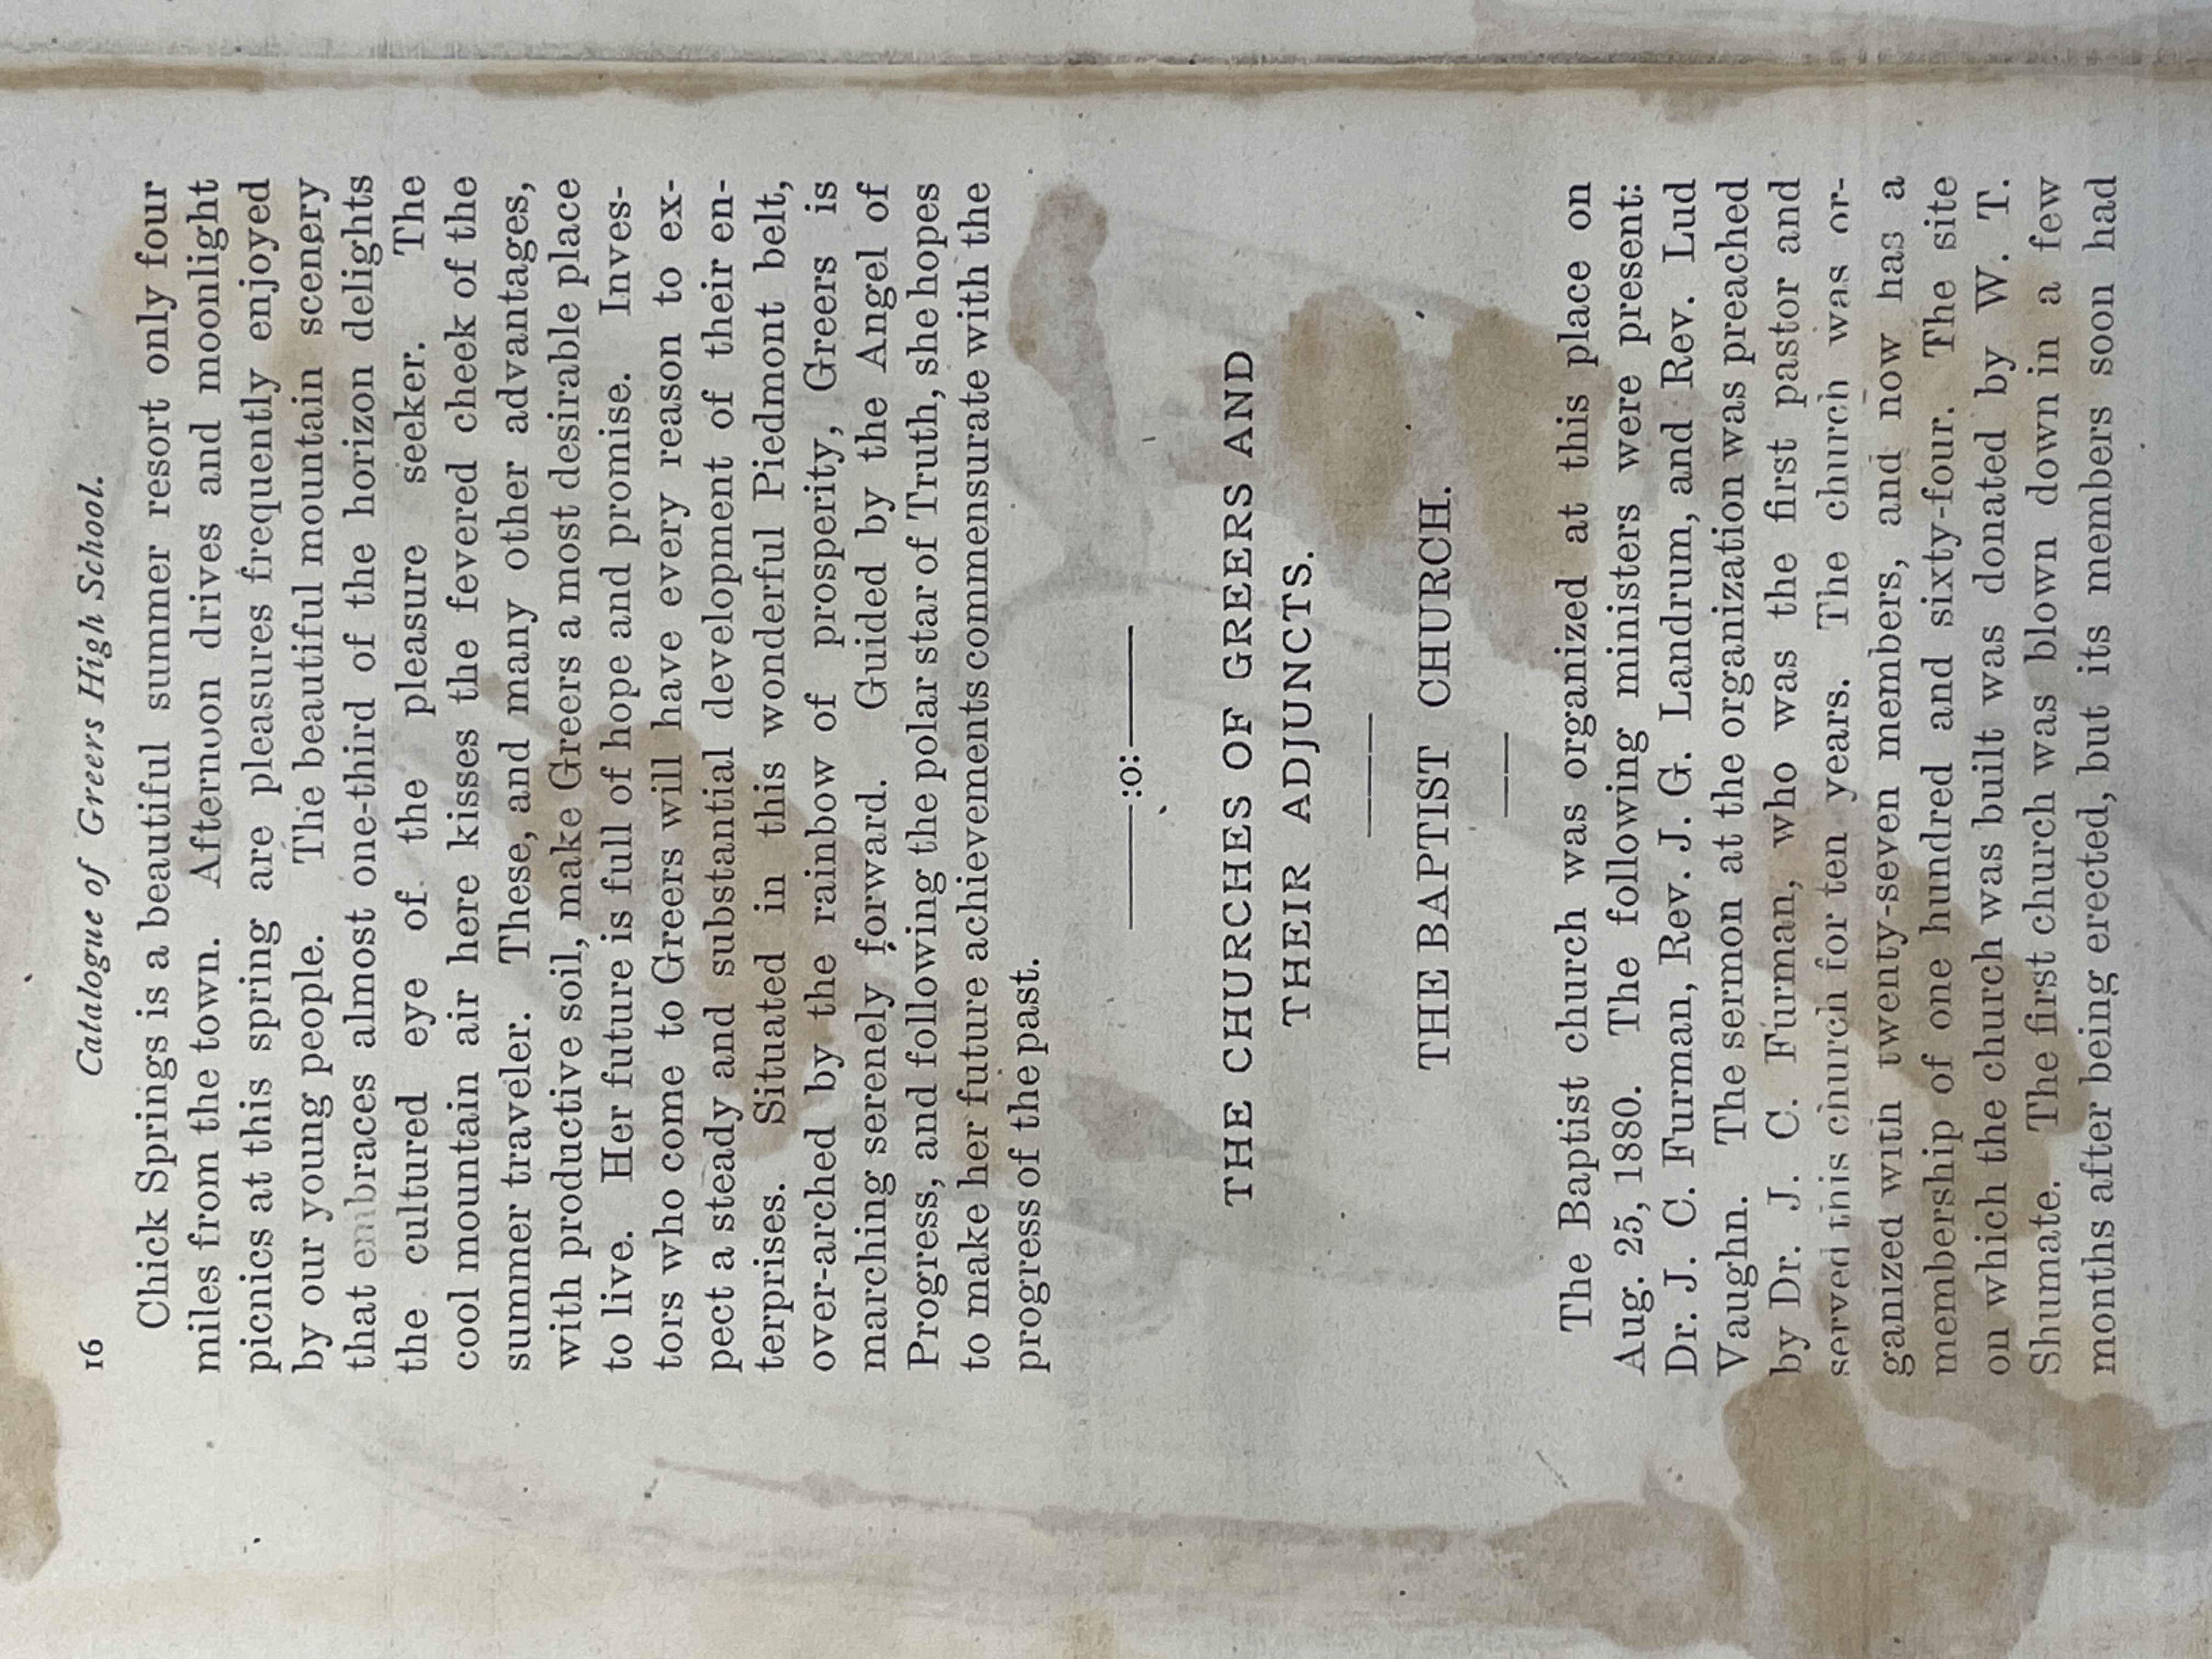 16 Catalogue of Greers High School.
Chick Springs is a beautiful summer resort only four
miles from the town. Afternoon drives and moonlight
picnics at this spring are pleasures frequently enjoyed
by our young people. The beautiful mountain scenery
that embraces almost one-third of the horizon delights
the cultured eye of the pleasure seeker. The
cool mountain air here kisses the fevered cheek of the
summer traveler. These, and many other advantages,
with productive soil, make Greers a most desirable place
to live. Her future is full of hope and promise. Inves-
tors who come to Greers will have every reason to ex-
pect a steady and substantial development of their en-
terprises. Situated in this wonderful Piedmont belt,
over-arched by the rainbow of prosperity, Greers is
marching serenely forward. Guided by the Angel of
Progress, and following the polar star of Truth, she hopes
to make her future achievements commensurate with the
progress of the past.
———:o:———
THE CHURCHES OF GREERS AND
THEIR ADJUNCTS.
THE BAPTIST CHURCH.
The Baptist church was organized at this place on
Aug. 25, 1880. The following ministers were present:
Dr. J. C. Furman, Rev. J. G. Landrum, and Rev. Lud
Vaughn. The sermon at the organization was preached
by Dr. J. C. Furman, who was the first pastor and
served this church for ten years. The church was or-
ganized with twenty-seven members, and now has a
membership of one hundred and sixty-four. The site
on which the church was built was donated by W. T.
Shumate. The first church was blown down in a few
months after being erected, but its members soon had